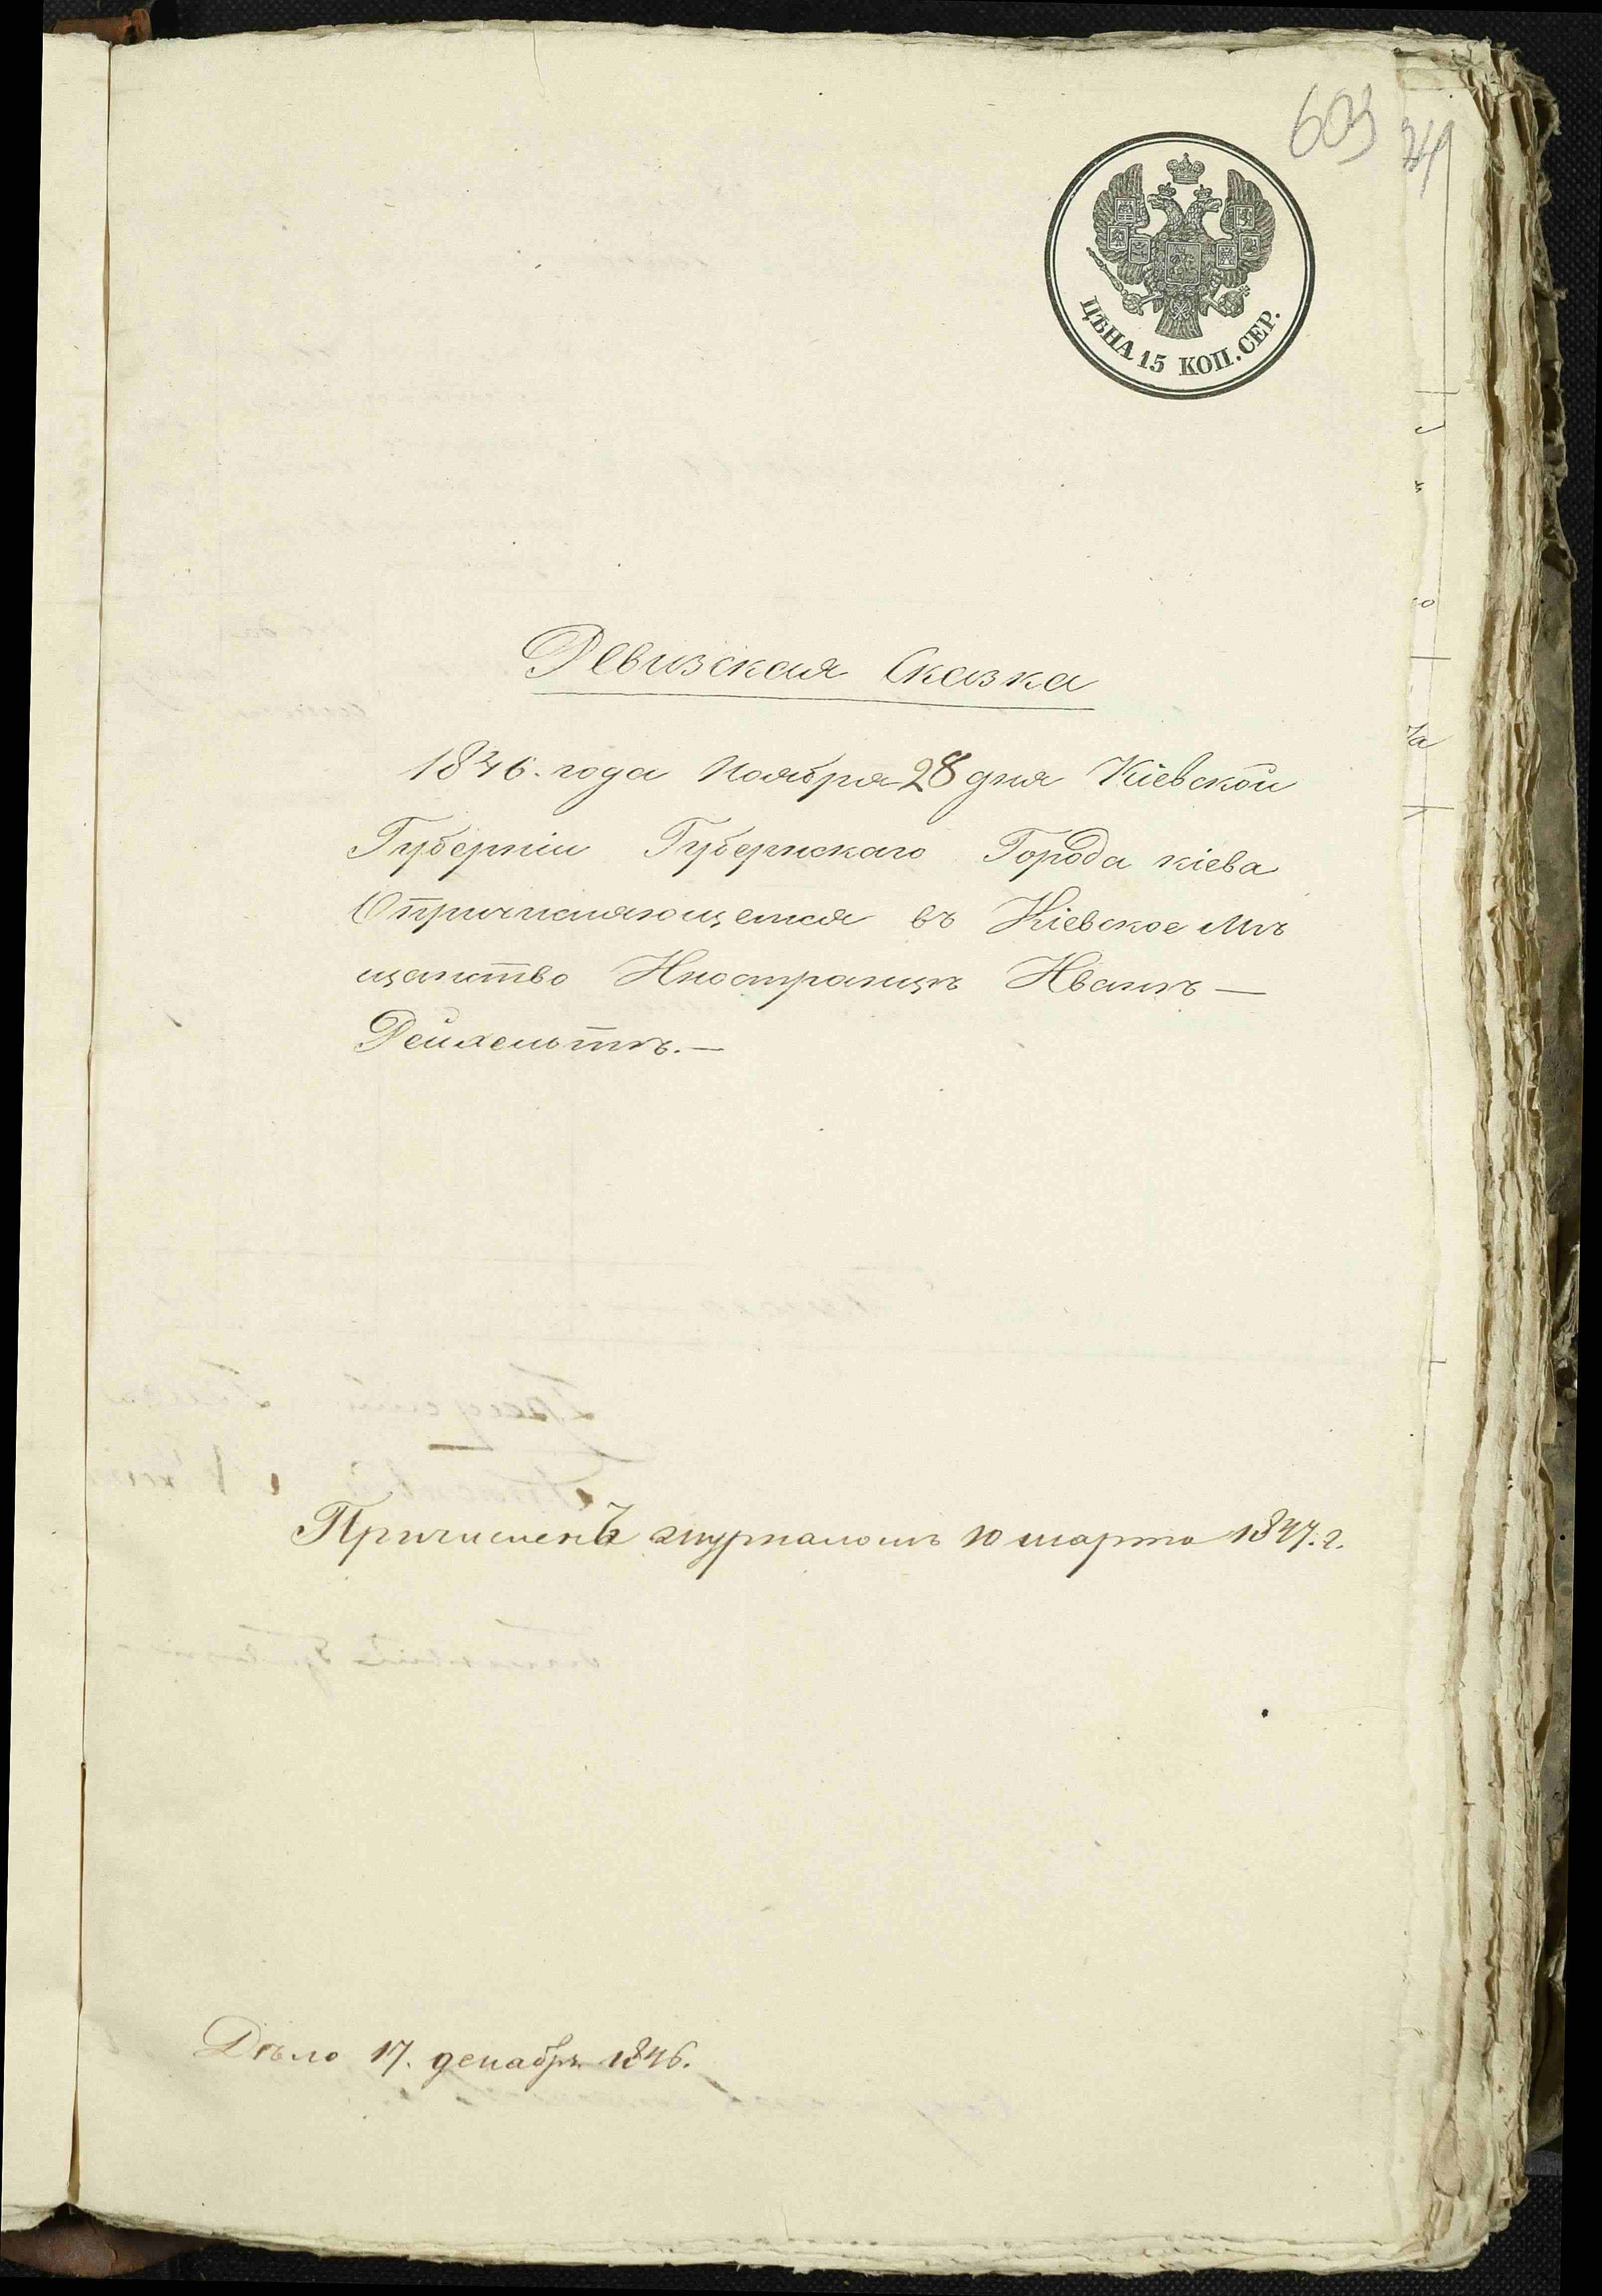 603
ЦѢНА 15 КОП. СЕР.
Ревизская Сказка
1846. года Ноября 28 дня Кіевской
Губерніи Губернскаго Города кіева
О причисляющемся въ Кіевское Мѣ
щанство Иностранцѣ Иванѣ —
Рейхельтѣ. —
Причисленъ журналомъ 10 марта 1847. г.
Дѣло 17. декабря 1846.